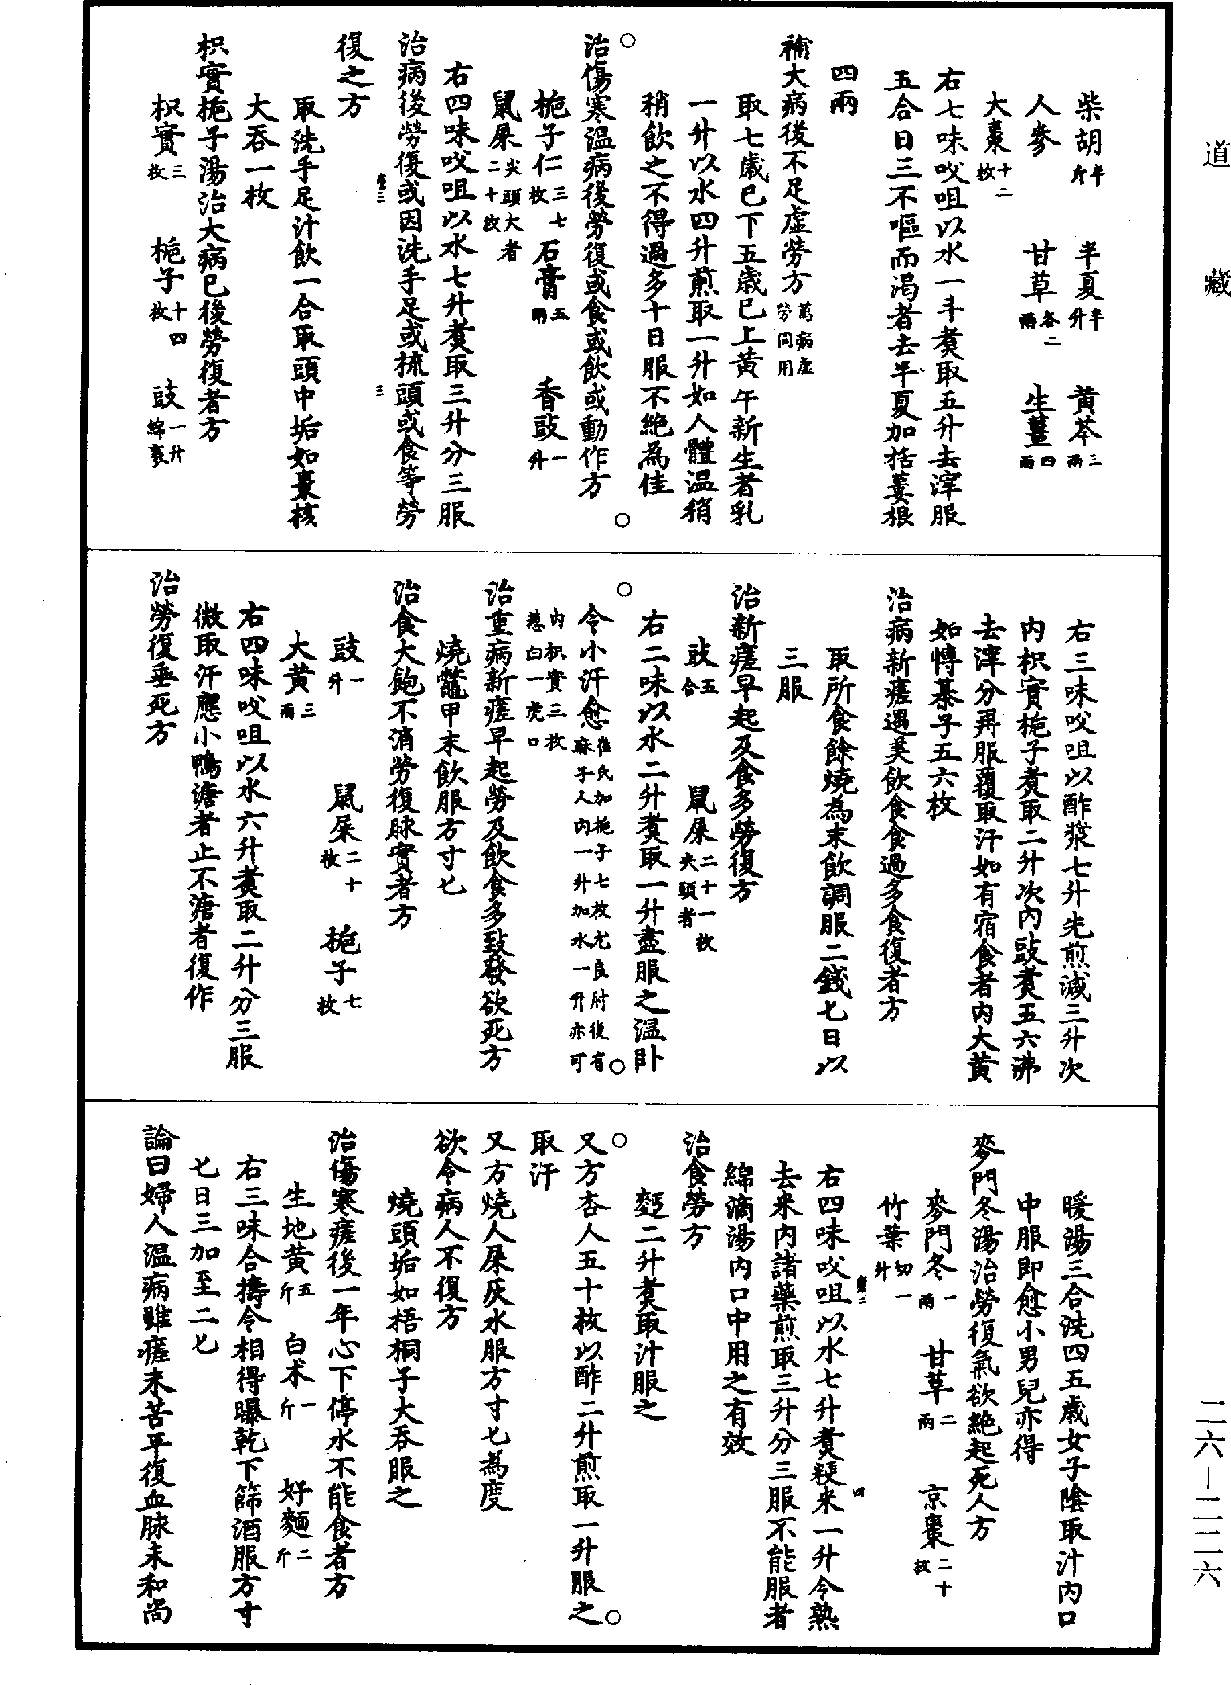 道藏
柴胡半斤　半夏半升　黃芩三兩
人參　甘草各二兩　生薑四兩
大棗十二枚
右七味㕮咀以水一斗煑取五升去滓服
五合日三不嘔而渴者去半夏加括蔞根
四兩
補大病後不足虛勞方萬病虛勞同用
取七歲已下五歲已上黃午新生者乳
一升以水四升煎取一升如人體溫稍
稍飲之不得過多十日服不絕為佳
治傷寒溫病後勞復或食或飲或動作方
梔子仁三七枚　石膏五兩　香豉一升
鼠屎尖頭大者二十枚
右四味㕮咀以水七升煑取三升分三服
治病後勞復或因洗手足或梳頭或食等勞
復之方
取洗手足汁飲一合取頭中垢如棗核
大吞一枚
枳實梔子湯治大病已後勞復者方
枳實三枚　梔子十四枚　豉一升綿裹
右三味㕮咀以酢漿七升先煎減三升次
內枳實梔子煑取二升次內豉煑五六沸
去滓分再服覆取汗如有宿食者內大黃
如慱棊子五六枚
治病新瘥遇美飲食食過多食復者方
取所食餘燒為末飲調服二錢七日以
三服
治新瘥早起及食多勞復方
豉五合　鼠屎二十一枚尖頭者
右二味以水二升煑取一升盡服之溫卧
令小汗愈崔氏加梔子七枚尤良肘後有麻子人內一升加水一升亦可
內枳實三枚葱白一虎口
治重病新瘥早起勞及飲食多致發欲死方
燒鼈甲末飲服方寸匕
治食大飽不消勞復脉實者方
豉一升　鼠屎二十枚　梔子七枚
大黃三兩
右四味㕮咀以水六升煑取二升分三服
微取汗應小鴨溏者止不溏者復作
治勞復垂死方
暖湯三合洗四五歲女子陰取汁內口
中服即愈小男兒亦得
麥門冬湯治勞復氣欲絕起死人方
麥門冬一兩　甘草二兩　京棗二十枚
竹葉切一升
右四味㕮咀以水七升煑粳米一升令熟
去米內諸藥煎取三升分三服不能服者
綿滴湯內口中用之有效
治食勞方
麴二升煑取汁服之
又方杏人五十枚以酢二升煎取一升服之
取汗
又方燒人屎灰水服方寸匕為度
欲令病人不復方
燒頭垢如梧桐子大吞服之
治傷寒瘥後一年心下停水不能食者方
生地黃五斤　白术一斤　好麵二斤
右三味合擣令相得曝乾下篩酒服方寸
匕日三加至二匕
論曰婦人溫病雖瘥未苦平復血脉未和尚
二六—二二六